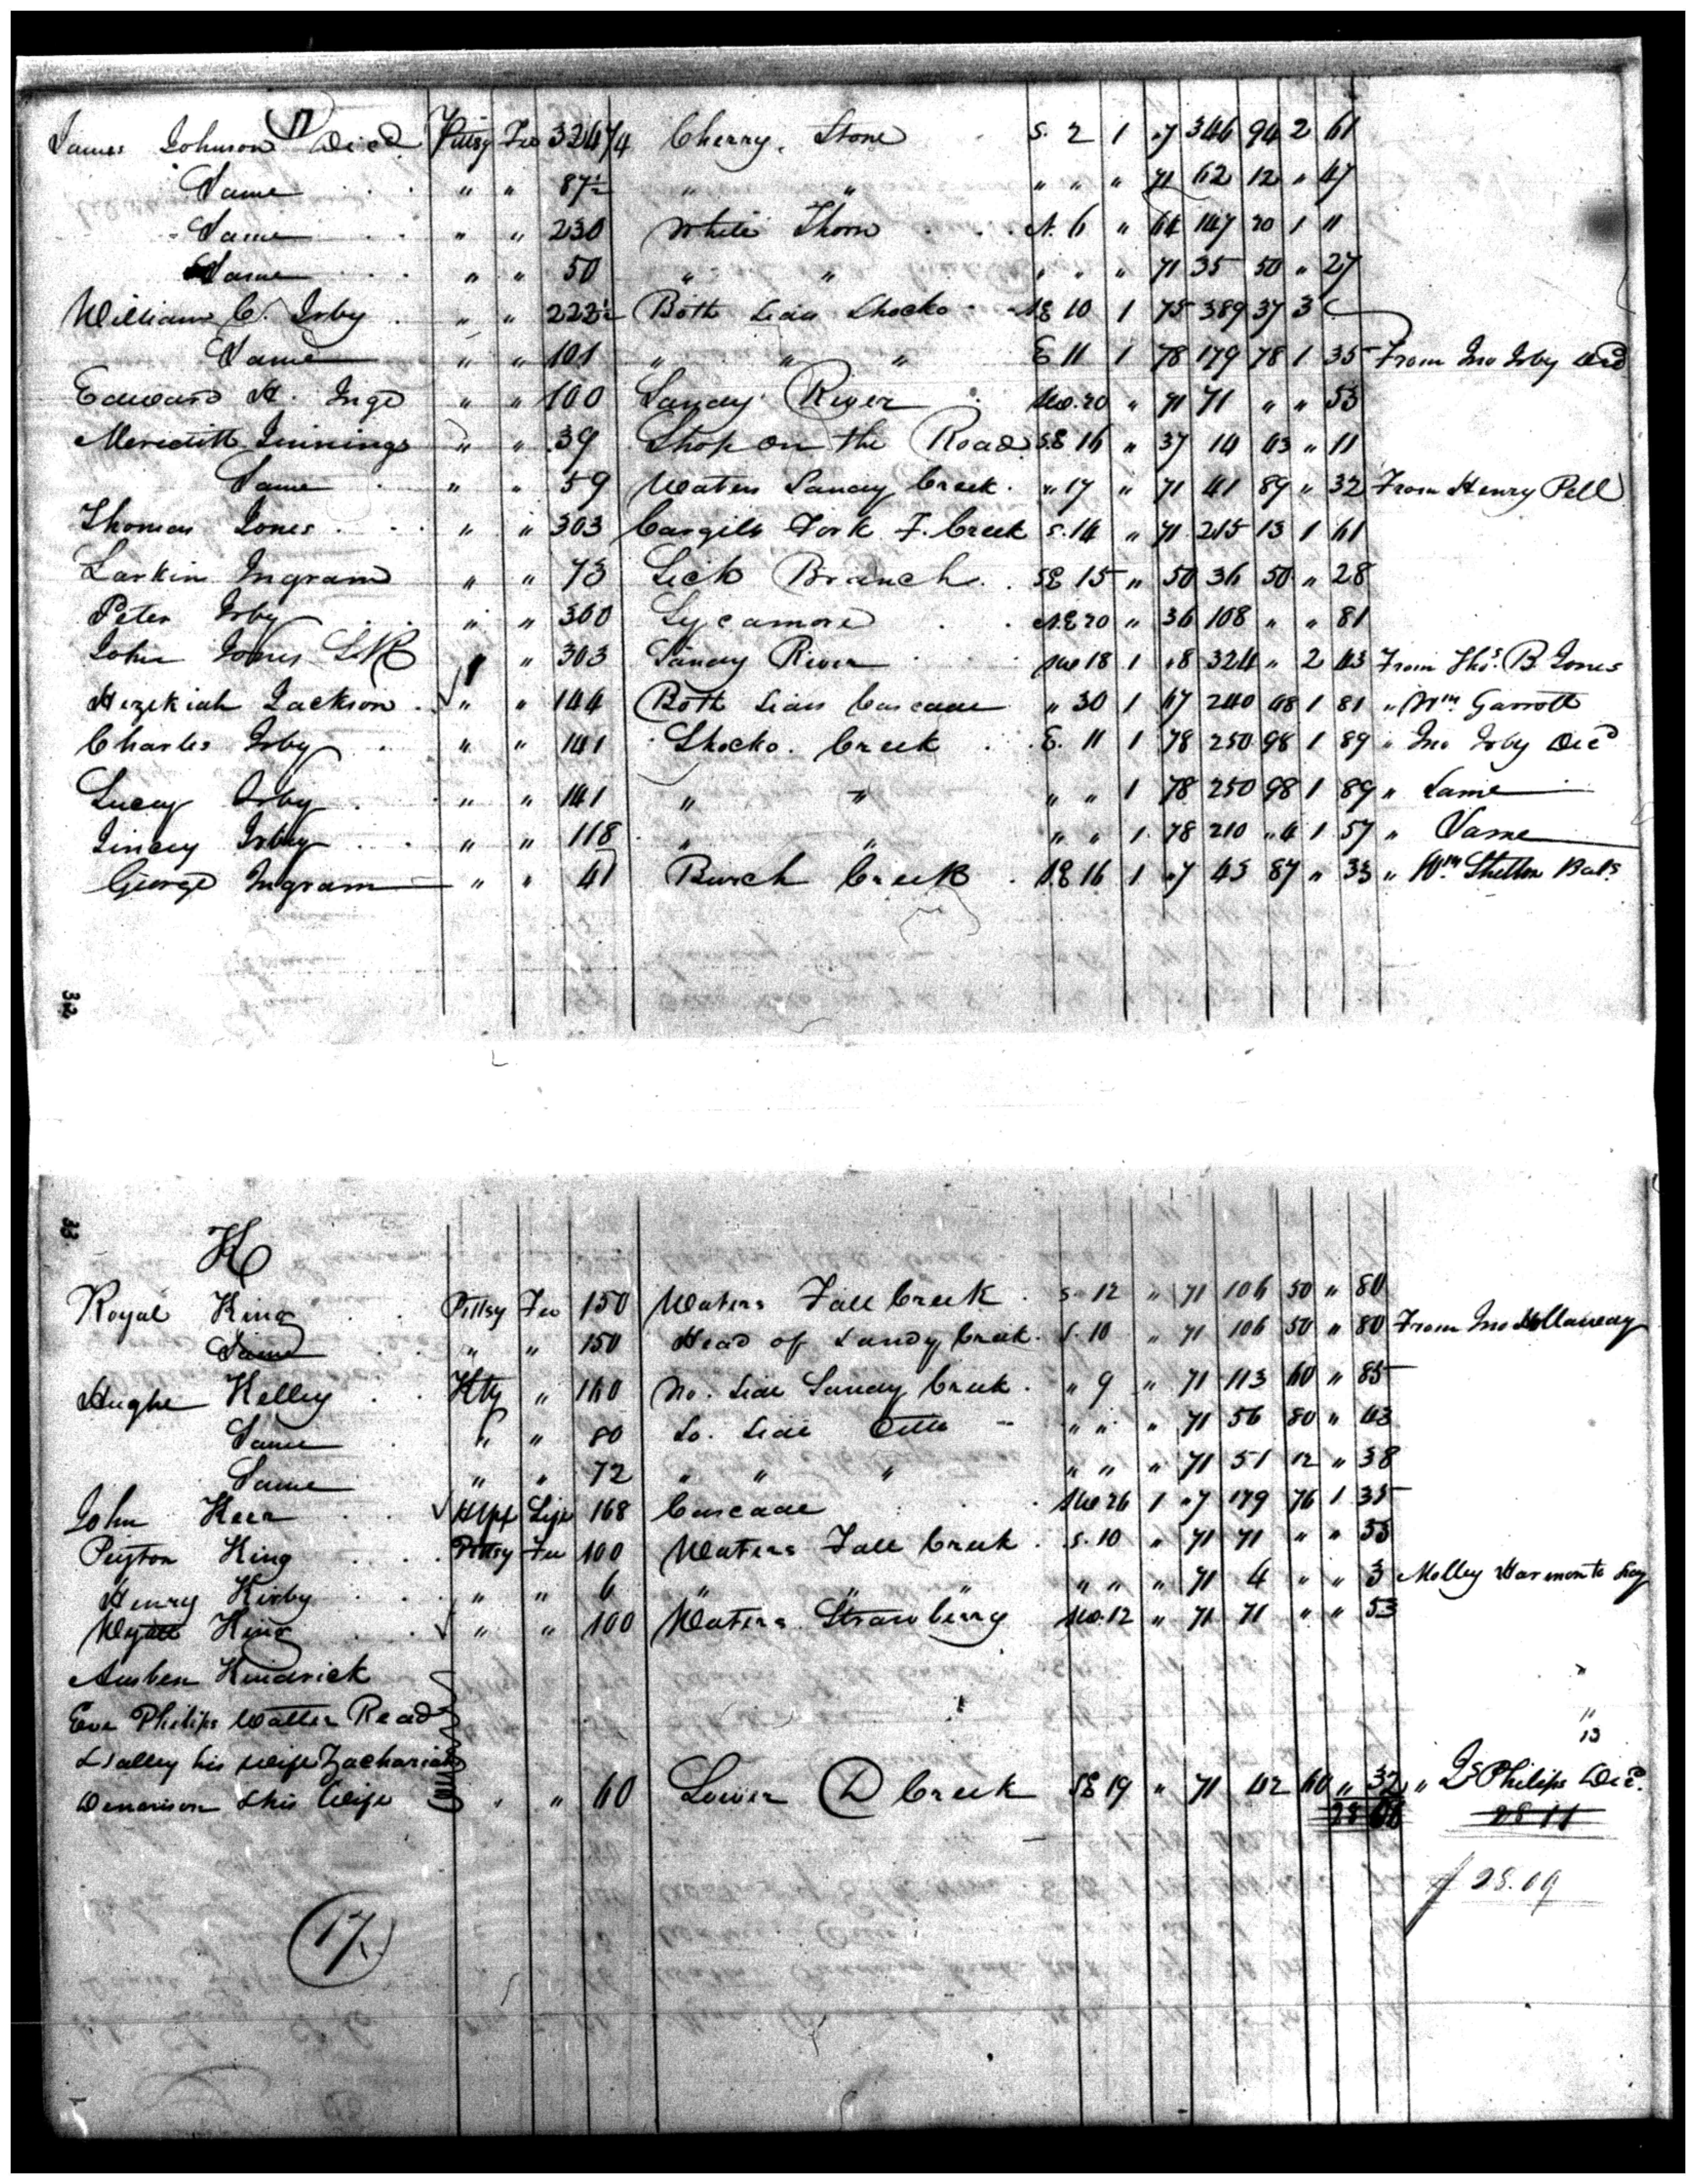 17
James Johnson Decd Pittsy Fee 324 1/4 Cherry Stone S. 2 1 "7 346 94 2 61
Same " " 87½ " " " " " 71 62 12 " 47
Same " " 230 White Thorn N. 6 " 64 147 20 1 11
Same " " 50 " " " " " 71 35 50 " 27
William C. Irby " " 222½ Both Sides Shocko NE 10 1 75 389 37 3
Same " " 101 " " " E 11 1 78 179 78 1 35 From Jno Irby Decd
Edward H. Inge " " 100 Sandy River SW. 20 " 71 71 " " 53
Meridith Jinnings " " 39 Shop on the Road SE 16 " 37 14 43 " 11
Same " " 59 Waters Sandy Creek " 17 " 71 41 89 " 32 From Henry Pell
Thomas Jones " " 303 Cargils Fork F. Creek S. 14 " 71 215 13 1 61
Larkin Ingram " " 73 Lick Branch SE 15 " 50 36 50 " 28
Peter Irby " " 300 Sycamore NE 20 " 36 108 " " 81
John Jones SR " 303 Sandy River SW 18 1 "8 324 " 2 43 From Thos. B. Jones
Hezekiah Jackson " " 144 Both Sides Cascade " 30 1 67 240 48 1 81 " Wm Garrott
Charles Irby " " 141 Shocko Creek E. 11 1 78 250 98 1 89 " Jno Irby Decd
Lucy Irby " " 141 " " " " 1 78 250 98 1 89 " Same
Jincy Irby " " 118 " " " " 1 78 210 "4 1 57 " Same
George Ingram " " 41 Burch Creek NE 16 1 "7 43 87 " 33 " Wm Shelton Bals
32
33
K
Royal King Pittsy Fee 150 Waters Fall Creek S. 12 " 71 106 50 " 80
Same " " 150 Head of Sandy Creek S. 10 " 71 106 50 " 80 From Jno Hollaway
Hughe Kelley Kty " 160 No. Side Sandy Creek " 9 " 71 113 60 " 85
Same " " 80 So. Side Ditto " " " 71 56 80 " 43
Same " " 72 " " " " " " 71 51 12 " 38
John Keen Hlfx Life 168 Cascade SW 26 1 "7 179 76 1 35
Peyton King Pittsy Fee 100 Waters Fall Creek S. 10 " 71 71 " " 53
Henry Kirby " " 6 " " " " " " 71 4 " " 3 Molley Harmon to pay
Wyatt King " " 100 Waters Strawberry SW. 12 " 71 71 " " 53
Kindrick
Philips Walter Read
& Salley his wife Zachariah
& his Wife " " 60 Lower D Creek SE 19 " 71 42 60 " 32 " Philips Decd.
28 11
$ 28.09
17